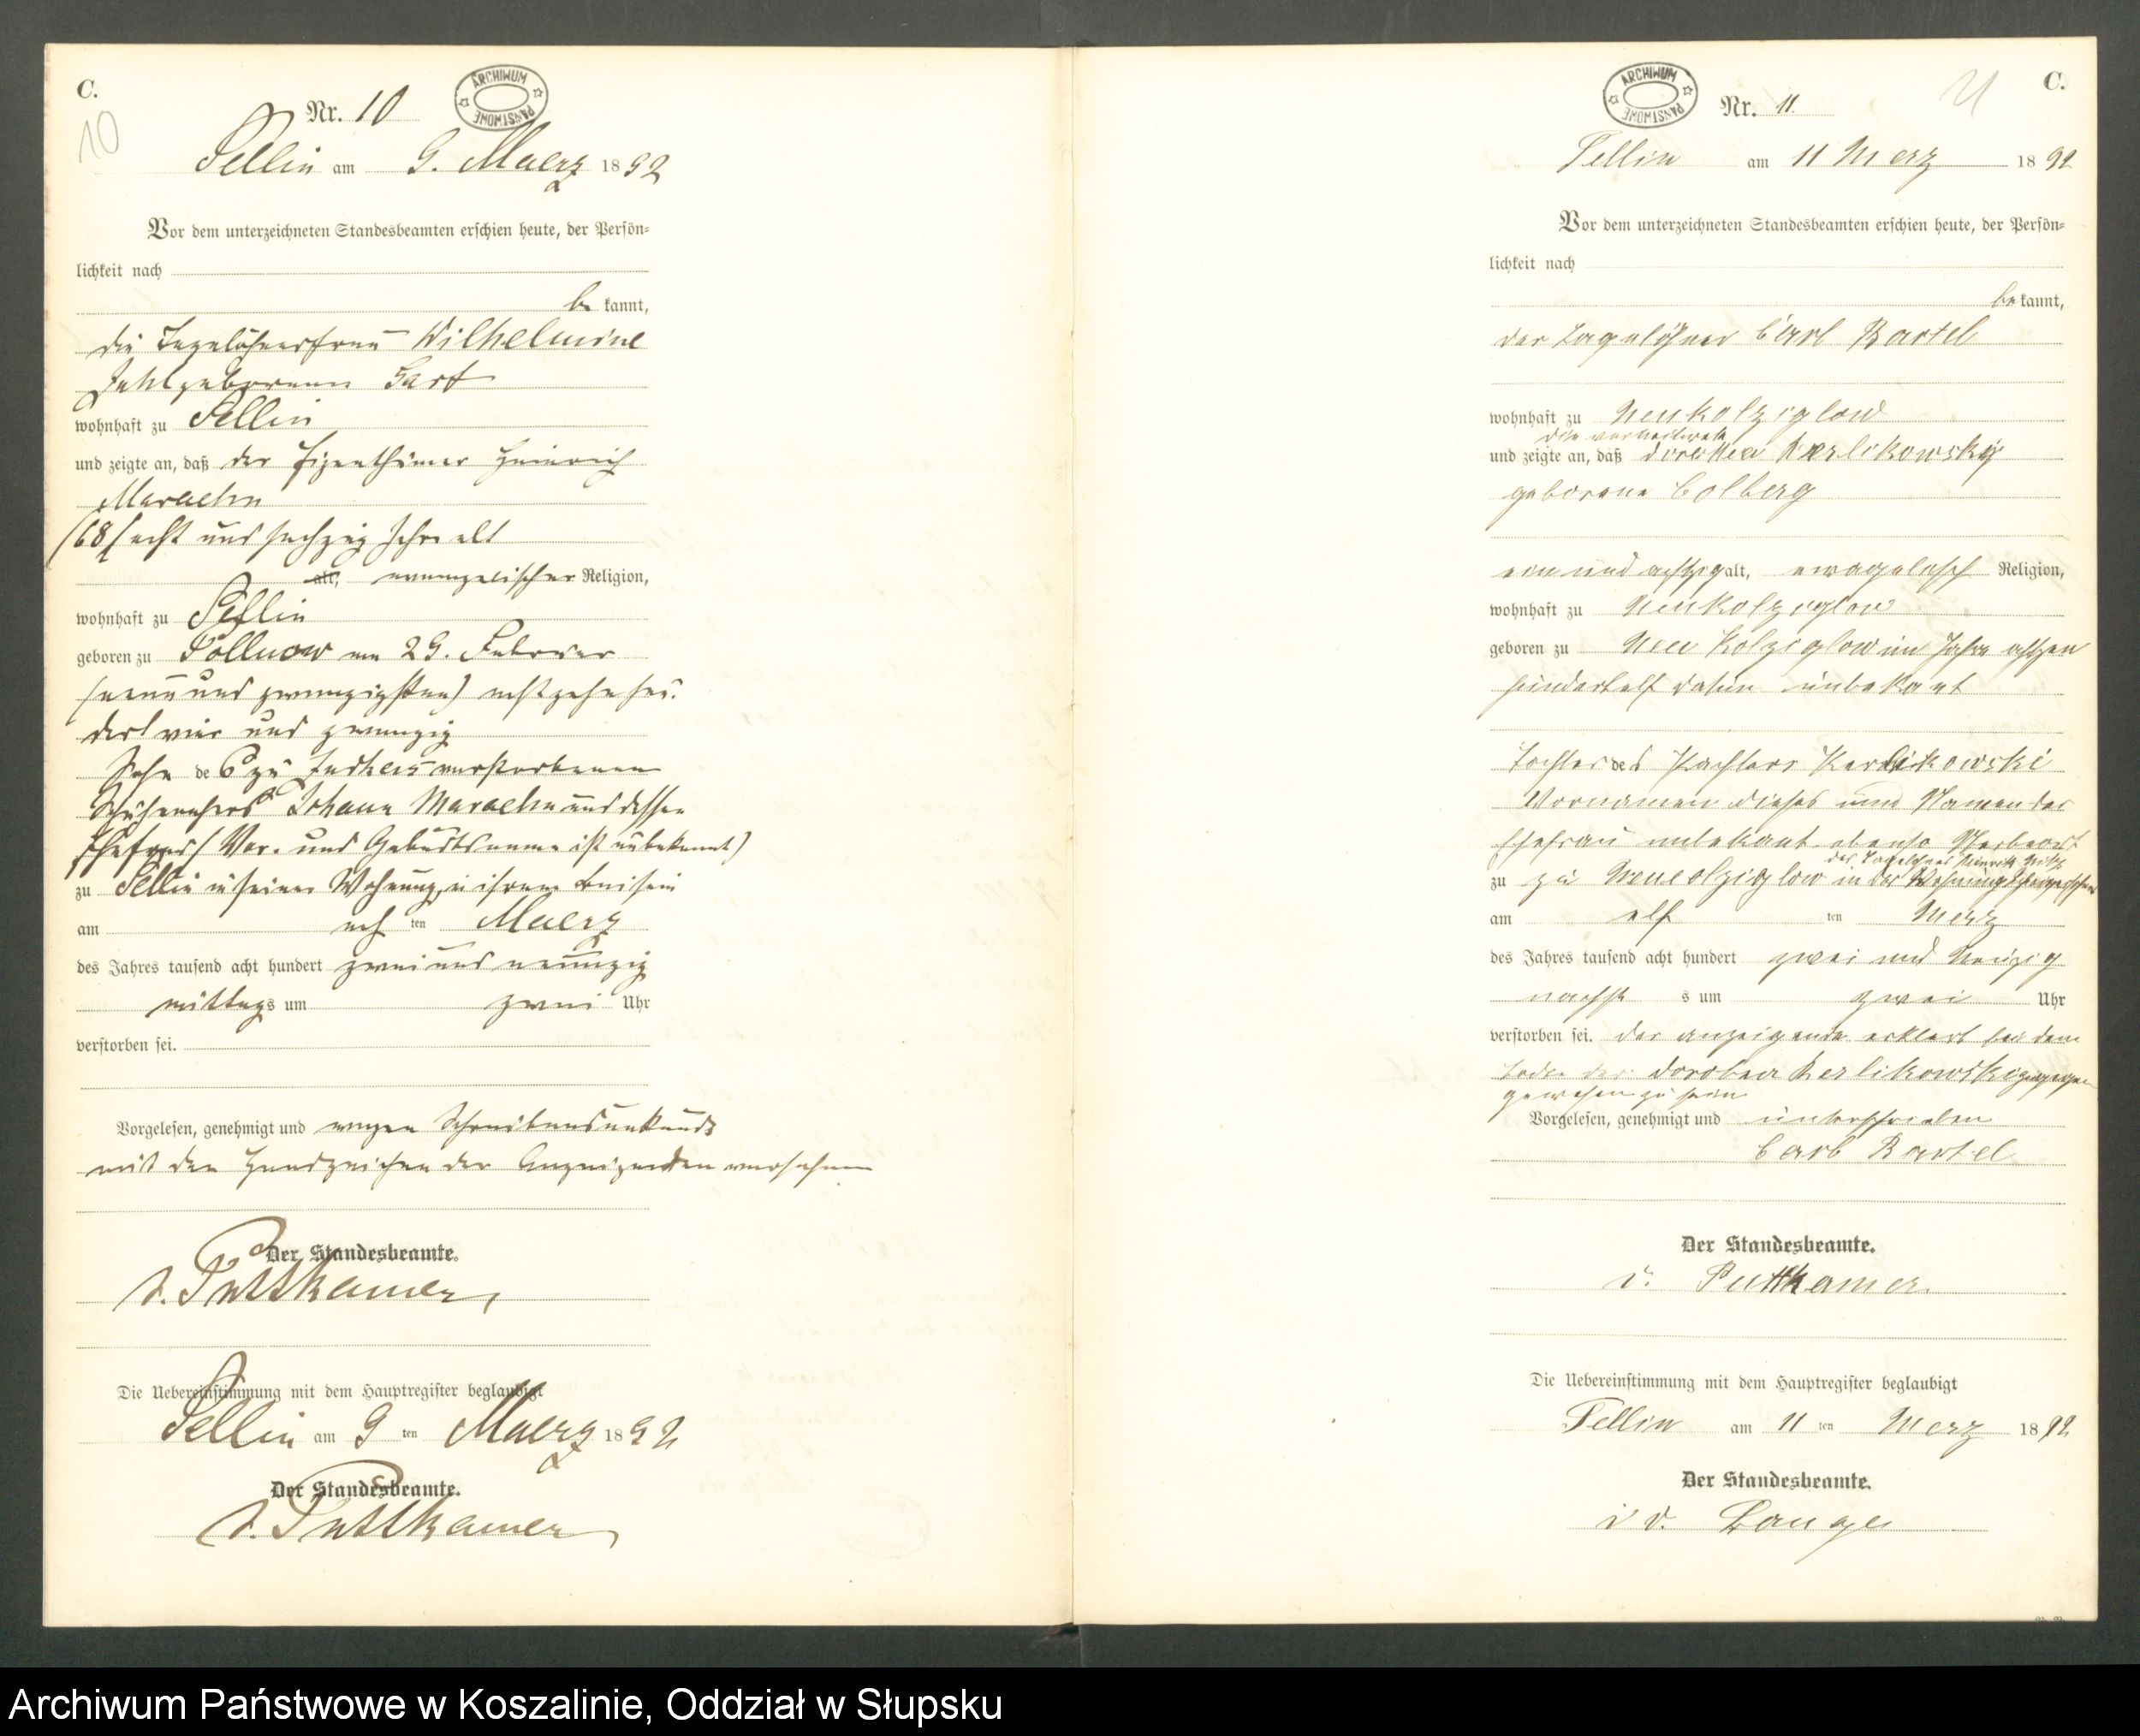 C.
10
Nr. 10
ARCHIWUM PAŃSTWOWE
Sellin am 9. Maerz 1892
Vor dem unterzeichneten Standesbeamten erschien heute, der Persön-
lichkeit nach
be kannt,
die Tagelöhnerfrau Wilhelmine
geborenen
wohnhaft zu Sellin
und zeigte an, daß der Eigenthümer Heinrich
Maraehn
(68) acht und sechzig Jahre alt
alt, evangelischer Religion,
wohnhaft zu Sellin
geboren zu Pollnow am 29. Februar
(neun und zwanzigsten) achtzehn hun-
dert vier und zwanzig
Sohn des zu verstorbenen
Johann Maraehn und dessen
Ehefrau (Vor- und Geburtsname ist unbekannt)
zu Sellin in seiner Wohnung, in ihrem Beisein
am ach ten Maerz
des Jahres tausend acht hundert zwei und neunzig
mittags um zwei Uhr
verstorben sei.
Vorgelesen, genehmigt und wegen Schreibensunkunde
mit den Handzeichen der Anzeigenden versehen
Der Standesbeamte.
v. Puttkamer
Die Uebereinstimmung mit dem Hauptregister beglaubigt
Sellin am 9 ten Maerz 1892
Der Standesbeamte.
v. Puttkamer
C.
11
ARCHIWUM PAŃSTWOWE
Nr. 11.
Sellin am 11 Merz 1892
Vor dem unterzeichneten Standesbeamten erschien heute, der Persön-
lichkeit nach
be kannt,
der Tagelöhner Carl Bartel
wohnhaft zu Neu Kolziglow
die
und zeigte an, daß Dorothea Kerlikowsky
geborene Colberg
ein und achtzig alt, Religion,
wohnhaft zu Neu Kolziglow
geboren zu Neu Kolziglow im Jahre achtzen
hundert elf datum unbekant
Tochter des Pachters Kerlikowski
Vornamen dieses und Namen der
Ehefrau unbekant ebenso Sterbeort
der Tagelöhner Heinrich
zu zu Neu olziglow in der Wohnung
am elf ten Merz
des Jahres tausend acht hundert zwei und Neuzig
nachts s um zwei Uhr
verstorben sei. der anzeigende erklert bei dem
Tode der Dorothea Kerlikowski zugegen
gewesen zu sein
Vorgelesen, genehmigt und unterschrieben
Carl Bartel
Der Standesbeamte.
v. Puttkamer
Die Uebereinstimmung mit dem Hauptregister beglaubigt
Sellin am 11 ten Merz 1892
Der Standesbeamte.
i v. Lange
Archiwum Państwowe w Koszalinie, Oddział w Słupsku